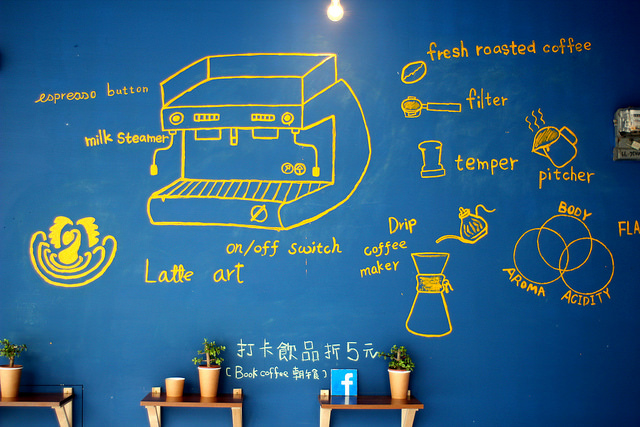 fresh roasted coffee
espresso button
filter
milk Steamer
temper
pitcher
BODY
Drip
coffee
maker
FLA
on/off switch
Latte art
AROMA
ACIDITY
打卡飲品折5元
f